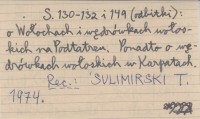 S. 130-132 i 149 (odbitki):
o Wołochach i wędrówkach wołos-
kich na Podtatrzu. Ponadto o wę-
drówkach wołoskich w Karpatach.
Rec.: SULIMIRSKI T.
1974.